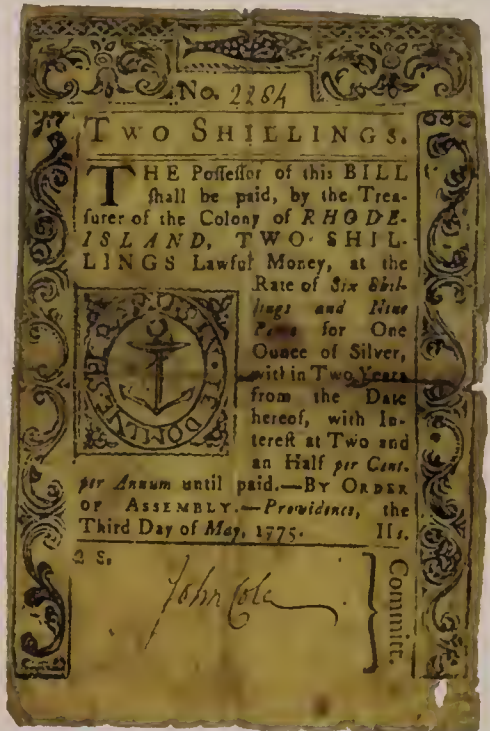 No. 2284
TWO SHILLINGS.
THE Poſſeſſor of this BILL
ſhall be paid, by the Trea-
ſurer of the Colony of RHODE-
ISLAND, TWO SHIL-
LINGS Lawful Money, at the
Rate of Six Shil-
lings and Nine
Pence for One
Ounce of Silver,
within Two Years
from the Date
hereof, with In-
tereſt at Two and
an Half per Cent.
per Annum until paid.—BY ORDER
OF ASSEMBLY.—Providence, the
Third Day of May, 1775. IIs.
IN TE DOMINE
2 S.
John Cole
Committ.